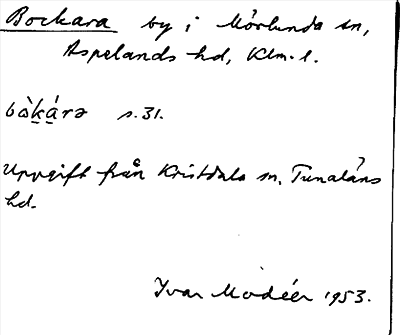 Bockara by i Mörlunda sn,
Aspelands hd, Klm. l.
bòkára s. 31.
Uppgift från Kristdala sn, Tunaläns
hd.
Ivar Modéer 1953.